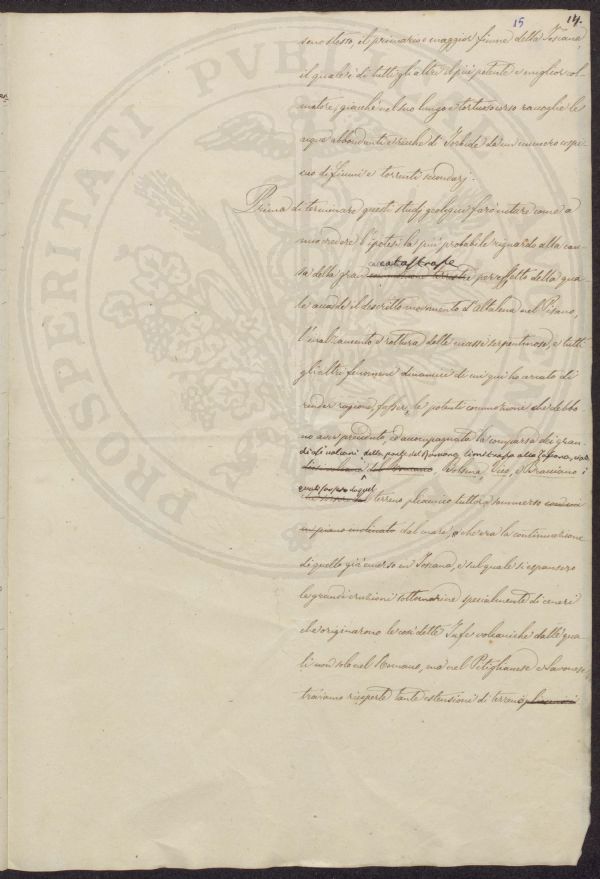 15 14.
seno stesso, il primario e maggior fiume della Toscana,
il quale è di tutti gli altri il più potente e miglior col-
matore, giacché nel suo lungo e tortuoso corso raccoglie le
acque abbondanti e ricche di Torbide da un numero cospi-
cuo di fiumi e torrenti secondarj.
Prima di terminare questi studj geologici farò notare come a
mio credere l'ipotesi la più probabile riguardo alla cau-
catastrofe
sa della gran per effetto della qua-
le accadde il descritto movimento d'altalena nel Pisano,
l'innalzamento e rottura delle masse serpentinose, e tutti
gli altri fenomeni dinamici di cui qui ho cercato di
render ragione, fosser le potenti commozioni che debbo-
no aver preceduto, ed accompagnato la comparsa dei gran-
di vulcani della parte del Romano, limitrofa alla Toscana,
del Romano, Bolsena, Vico, e Bracciano i
quali
terreno pliocenico tuttora sommerso
in piano inclinato dal mare, che era la continuazione
di quello già emerso in Toscana, e sul quale si espansero
le grandi eruzioni sottomarine specialmente di ceneri
che originarono le così dette Tufe volcaniche dalle qua-
li non solo nel Romano, ma nel Pitiglianese e Savonese
troviamo ricoperte tante estensioni di terreno pliocenico
PROSPERITATI PUBLICAE